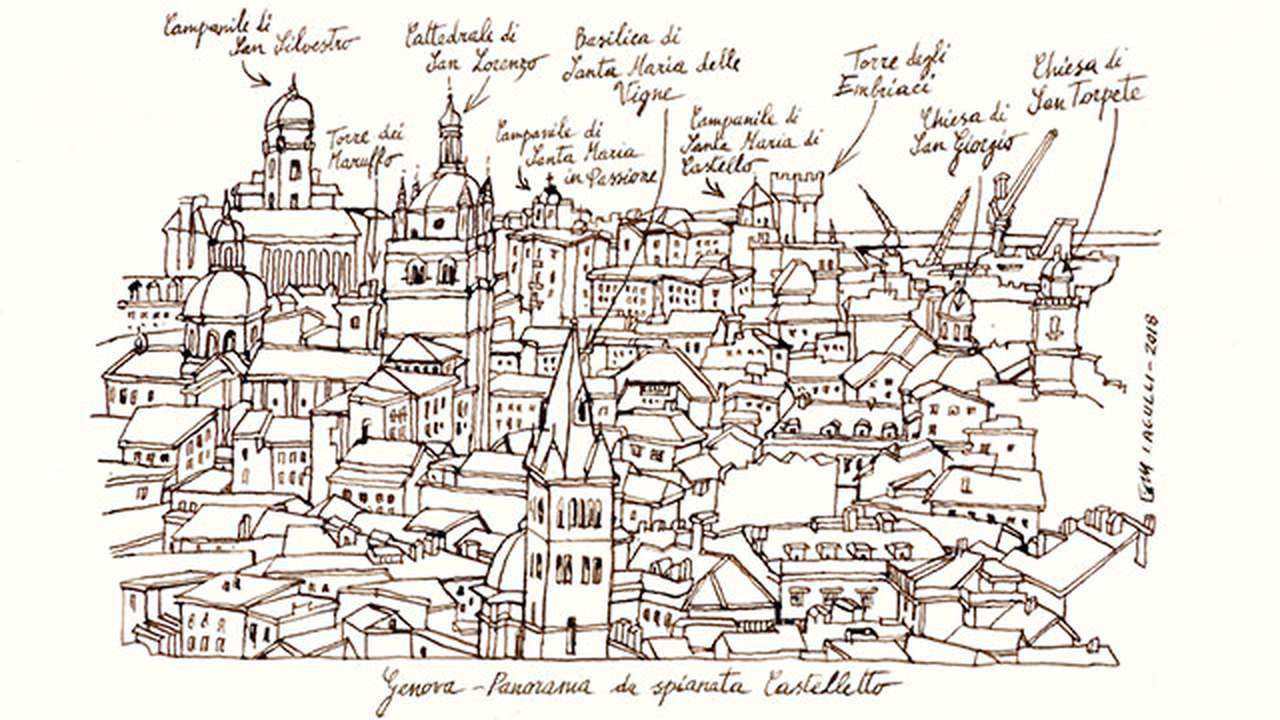 Campanile di
San Silvestro
Cattedrale di
San Lorenzo
Basilica di
Santa Maria delle
Vigne
Torre degli
Embriaci
Chiesa di
San Torpete
Torre dei
Maruffo
Campanile di
Santa Maria
in Passione
Campanile di
Santa Maria di
Castello
Chiesa di
San Giorgio
IAGULLI - 2018
Genova - Panorama da spianata Castelletto